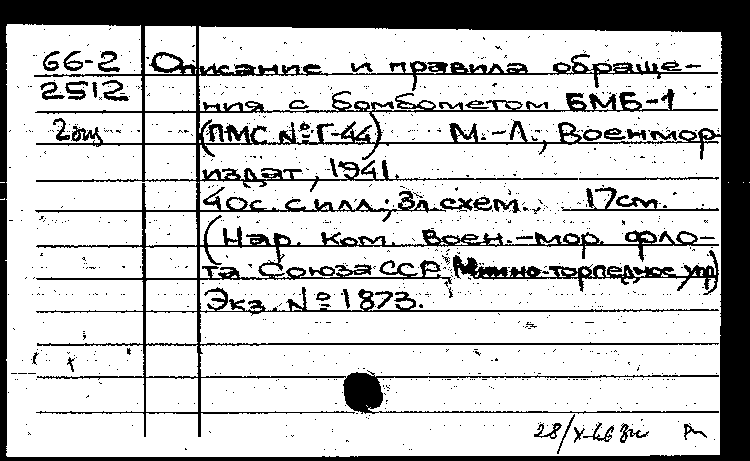 66-2 Описание и правила обраще-
2512 ния с бомбометом БМБ-1
2 экз (ПМС № Г-44) М.-Л., Военмор-
издат, 1941.
40с. с илл.; 3л. схем. 17см.
(Нар. Ком. Воен.-мор. фло-
та Союза ССР. Минно-торпедное упр)
Экз. № 1873.
28/X-66